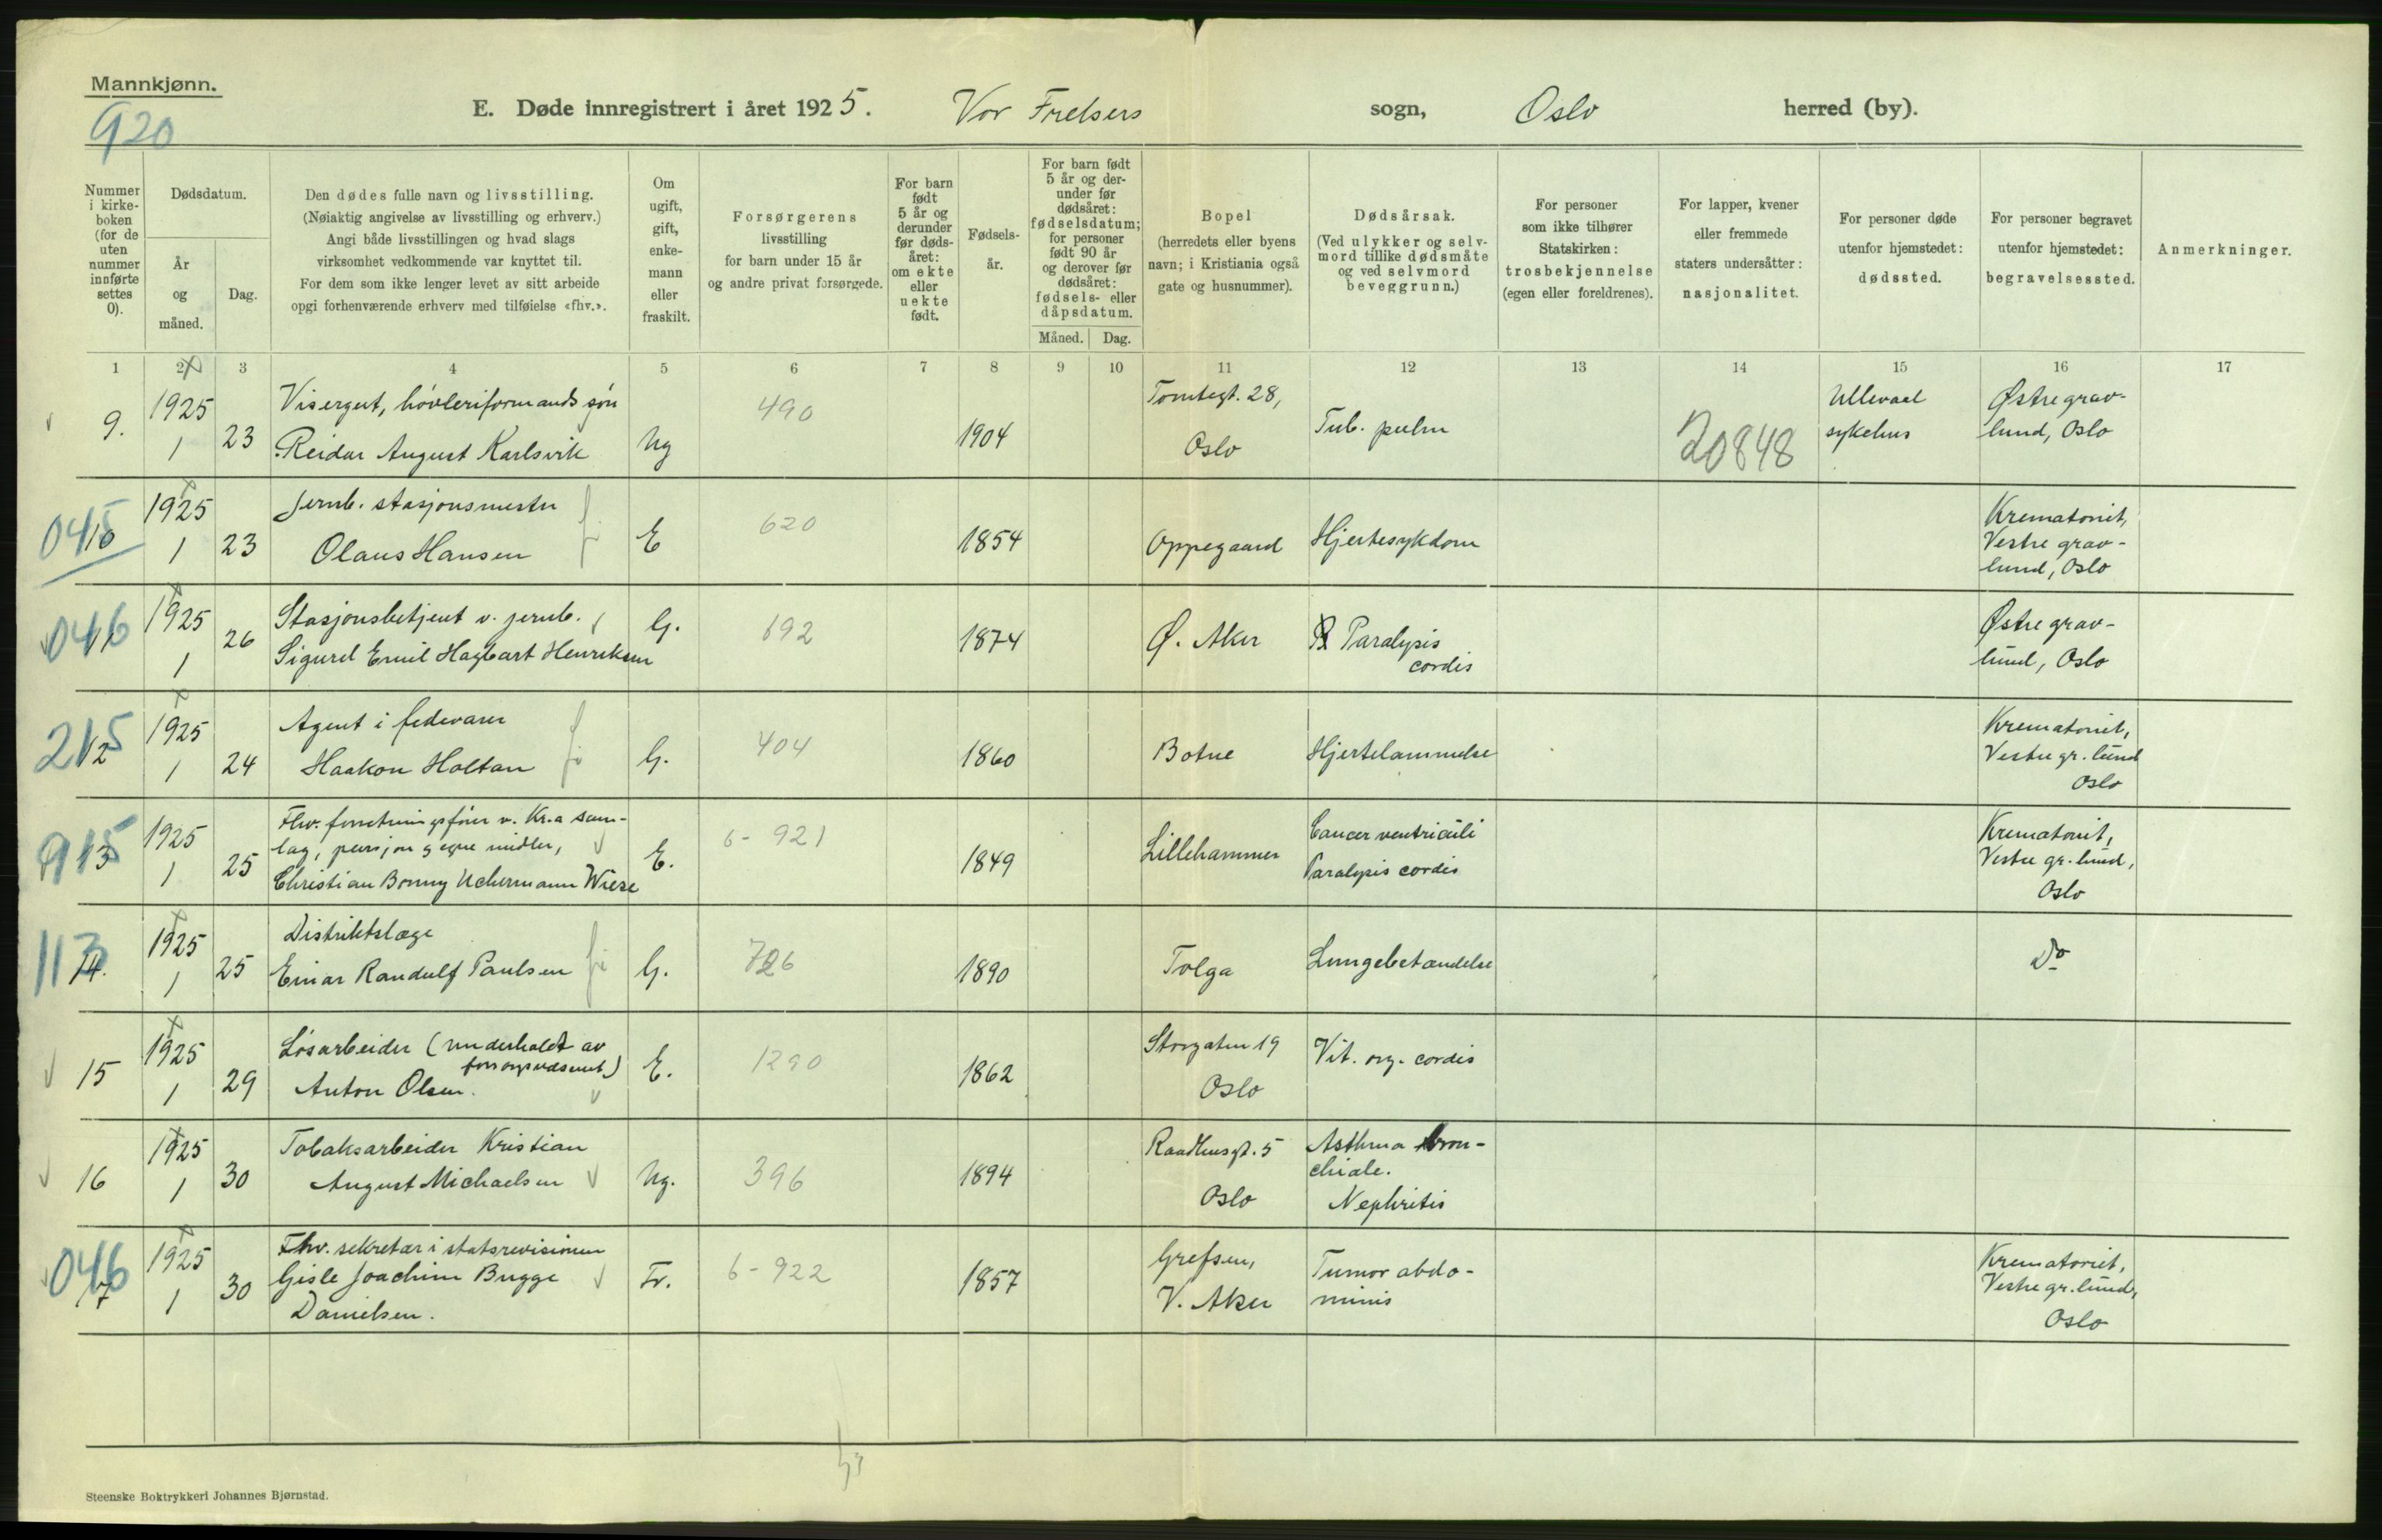 Mannkjønn.
920
E. Døde innregistrert i året 1925. Vor Frelsers sogn, Oslo herred (by).
Nummer i kirke-boken (for de uten nummer innførte settes 0).
Dødsdatum.
År og måned.
Dag.
Den dødes fulle navn og livsstilling.
(Nøiaktig angivelse av livsstilling og erhverv.)
Angi både livsstillingen og hvad slags
virksomhet vedkommende var knyttet til.
For dem som ikke lenger levet av sitt arbeide
opgi forhenværende erhverv med tilføielse «fhv.».
Om ugift, gift, enke-mann eller fraskilt.
Forsørgerens
livsstilling
for barn under 15 år
og andre privat forsørgede.
For barn født 5 år og derunder før døds-året: om ekte eller uekte født.
Fødsels-år.
For barn født 5 år og der-under før dødsåret: fødselsdatum; for personer født 90 år og derover før dødsåret: fødsels- eller dåpsdatum.
Måned. Dag.
Bopel
(herredets eller byens
navn; i Kristiania også
gate og husnummer).
Dødsårsak.
(Ved ulykker og selv-
mord tillike dødsmåte
og ved selvmord
beveggrunn.)
For personer
som ikke tilhører
Statskirken:
trosbekjennelse
(egen eller foreldrenes).
For lapper, kvener
eller fremmede
staters undersåtter:
nasjonalitet.
For personer døde
utenfor hjemstedet:
dødssted.
For personer begravet
utenfor hjemstedet:
begravelsessted.
Anmerkninger.
1 2 3 4 5 6 7 8 9 10 11 12 13 14 15 16 17
9. 1925 1 23 Visergut, høvleriformands søn
Reidar August Karlsvik Ug 490 1904 Tomtegt. 28,
Oslo Tub. pulm 20848 Ullevaal
sykehus Østre grav-
lund, Oslo
045 1925 1 23 Jernb. stasjonsmester
Olaus Hansen E 620 1854 Oppegaard Hjertesykdom Krematoriet,
Vestre grav-
lund, Oslo
046 1925 1 26 Stasjonsbetjent v. jernb.
Sigurd Emil Hagbart Henriksen G. 692 1874 Ø. Aker Paralysis
cordis Østre grav-
lund, Oslo
215 12 1925 1 24 Agent i fedevarer
Haakon Holtan G. 404 1860 Botne Hjertelammelse Krematoriet,
Vestre gr. lund
Oslo
915 13 1925 1 25 Fhv. forretningsfører v. Kr.a sam-
lag, pensjon g egne midler,
Christian Bonny Uchermann Wiese E. 6-921 1849 Lillehammer Cancer ventriculi
Paralysis cordis Krematoriet,
Vestre gr. lund,
Oslo
113 14. 1925 1 25 Distriktslæge
Einar Randulf Paulsen G. 726 1890 Tolga Lungebetændelse Do
15 1925 1 29 Løsarbeider (underholdt av
forsorgsvdsenet)
Anton Olsen. E. 1290 1862 Storgaten 19
Oslo Vit. org. cordis
16 1925 1 30 Tobaksarbeider Kristian
August Michaelsen Ug. 396 1894 Raadhusgt. 5
Oslo Asthma bron-
chiale.
Nephritis
046 17 1925 1 30 Fhv. sekretær i statsrevisionen
Gisle Joachim Bugge
Danielsen. Fr. 6-922 1857 Grefsen,
V. Aker Tumor abdo-
minis Krematoriet,
Vestre gr. lund,
Oslo
Steenske Boktrykkeri Johannes Bjørnstad.